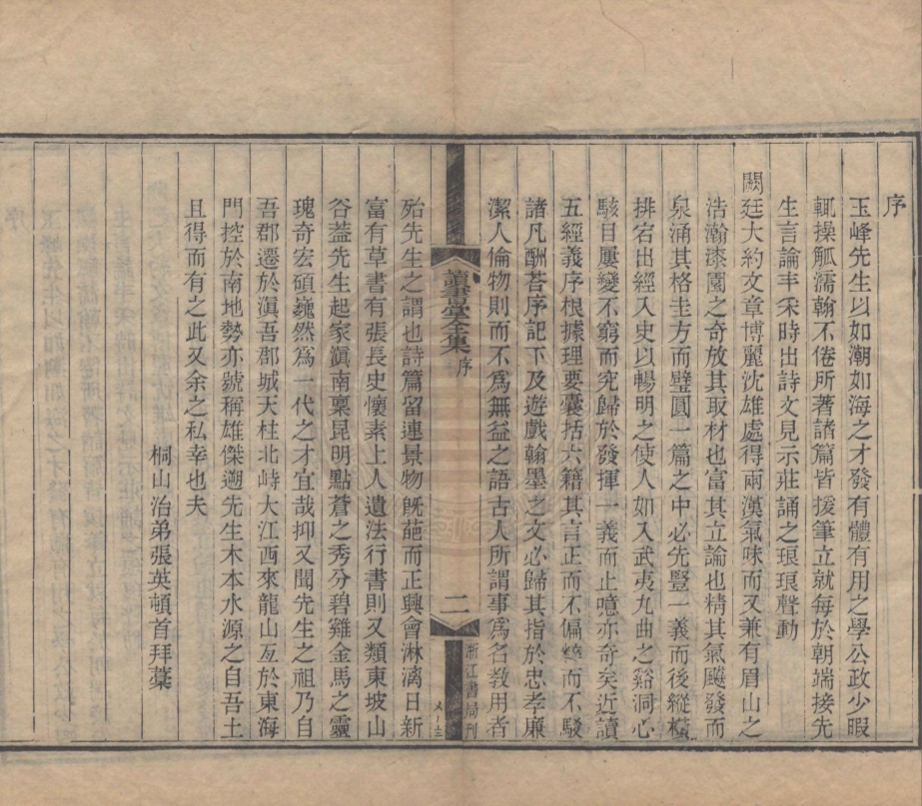 序
玉峰先生以如潮如海之才發有體有用之學公政少暇
輒操觚濡翰不倦所著諸篇皆援筆立就每於朝端接先
生言論丰采時出詩文見示莊誦之琅琅聲動
闕廷大約文章博麗沈雄處得兩漢氣味而又兼有眉山之
浩瀚漆園之奇放其取材也富其立論也精其氣飈發而
泉涌其格圭方而璧圓一篇之中必先豎一義而後縱橫
排宕出經入史以暢明之使人如入武夷九曲之谿洞心
駭目屢變不窮而究歸於發揮一義而止噫亦奇矣近讀
五經義序根據理要囊括六籍其言正而不偏
而不駁
諸凡酬荅序記下及遊戲翰墨之文必歸其指於忠孝廉
潔人倫物則而不爲無益之語古人所謂事爲名教用者
讀書堂全集
序
二
浙江書局刊
殆先生之謂也詩篇留連景物旣葩而正興會淋漓日新
富有草書有張長史懷素上人遺法行書則又類東坡山
谷葢先生起家滇南稟昆明點蒼之秀分碧雞金馬之靈
瑰奇宏碩巍然爲一代之才宜哉抑又聞先生之祖乃自
吾郡遷於滇吾郡城天柱北峙大江西來龍山亙於東海
門控於南地勢亦號稱雄傑遡先生木本水源之自吾土
且得而有之此又余之私幸也夫
桐山治弟張英頓首拜藁